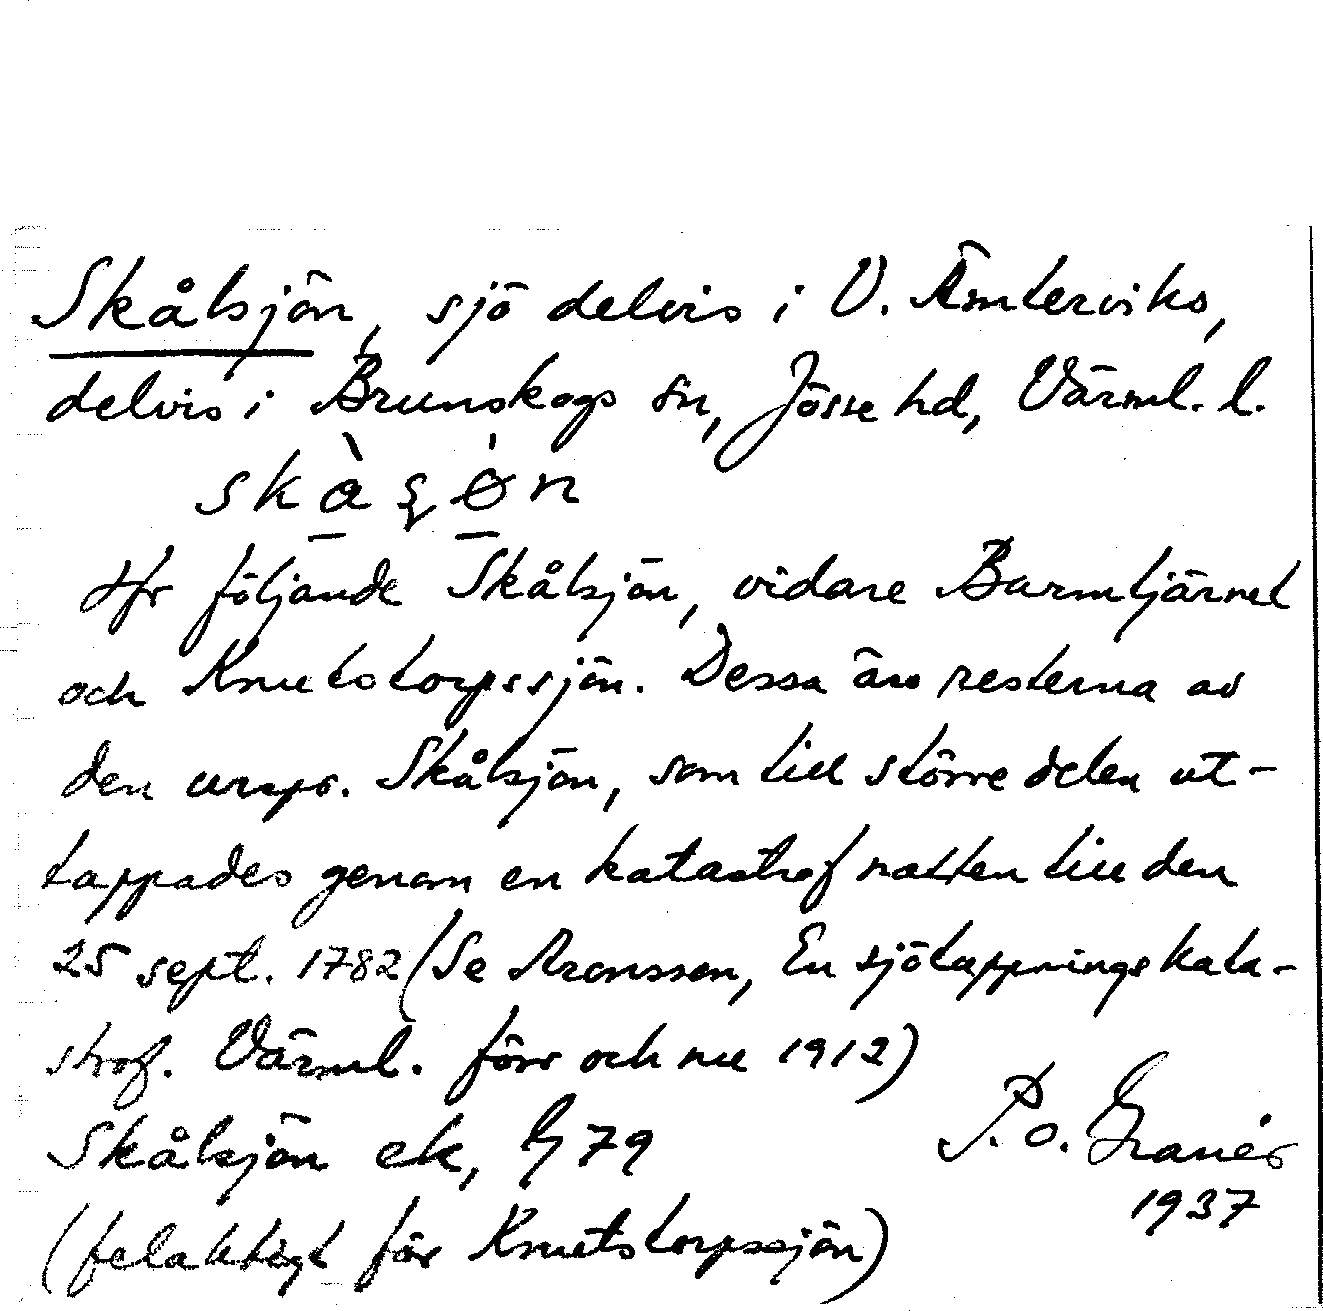 Skålsjön, sjö delvis i V. Ämterviks,
delvis i Brunskogs sn, Jösse hd, Värml. l.
skàʂø̀n
Jfr följande Skålsjön, vidare Barmtjärnet
och Knutstorpssjön. Dessa äro resterna av
den urspr. Skålsjön, som till större delen ut-
tappades genom en katastrof natten till den
25 sept. 1782 (Se Aronsson, En sjötappningskata-
strof. Värml. förr och nu 1912)
Skålsjön ek, 79
P. O. Granér
1937
(felaktigt för Knutstorpssjön)